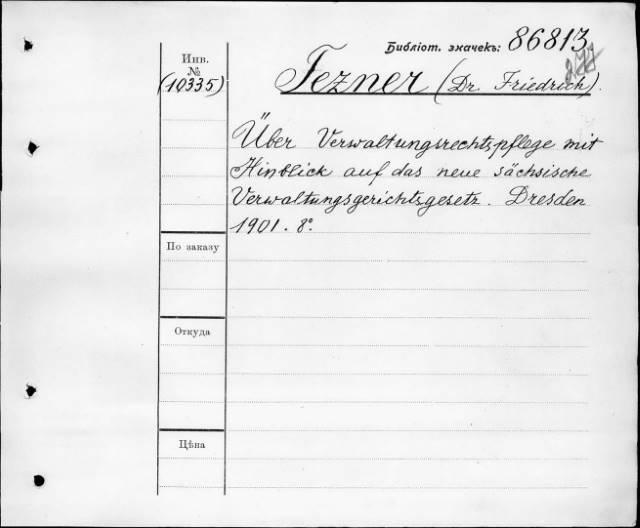 Библіот. значекъ: 86813
Инв.
№
(10335)
Fezner (Dr. Friedrich).
Über Verwaltungsrechtspflege mit
Hinblick auf das neue sächsische
Verwaltungsgerichtsgesetz. Dresden
1901. 8º.
По заказу
Откуда
Цѣна